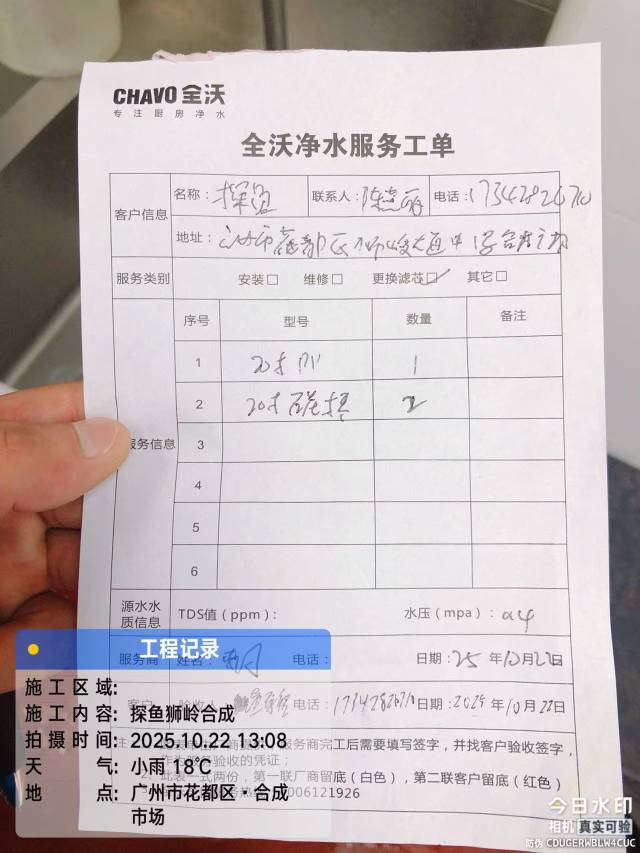 CHAVO 全沃
专注厨房净水
全沃净水服务工单
客户信息
名称：探鱼 联系人： 电话：17342826710
地址：
服务类别 安装□ 维修□ 更换滤芯☑ 其它□
服务信息
序号 型号 数量 备注
1 20寸PP 1
2 20寸碳棒 2
3
4
5
6
源水水质信息 TDS值（ppm）： 水压（mpa）：0.4
服务商 姓名： 电话： 日期：25年10月22日
客户 验收人 电话：17342826710 日期：2025年10月22日
服务商完工后需要填写签字，并找客户验收签字，
验收的凭证；
2、此表一式两份，第一联厂商留底（白色），第二联客户留底（红色）
006121926
工程记录
施工区域:
施工内容: 探鱼狮岭合成
拍摄时间: 2025.10.22 13:08
天气: 小雨 18℃
地点: 广州市花都区·合成
市场
今日水印
相机 真实可验
防伪 CDUGERWBLW4CUC